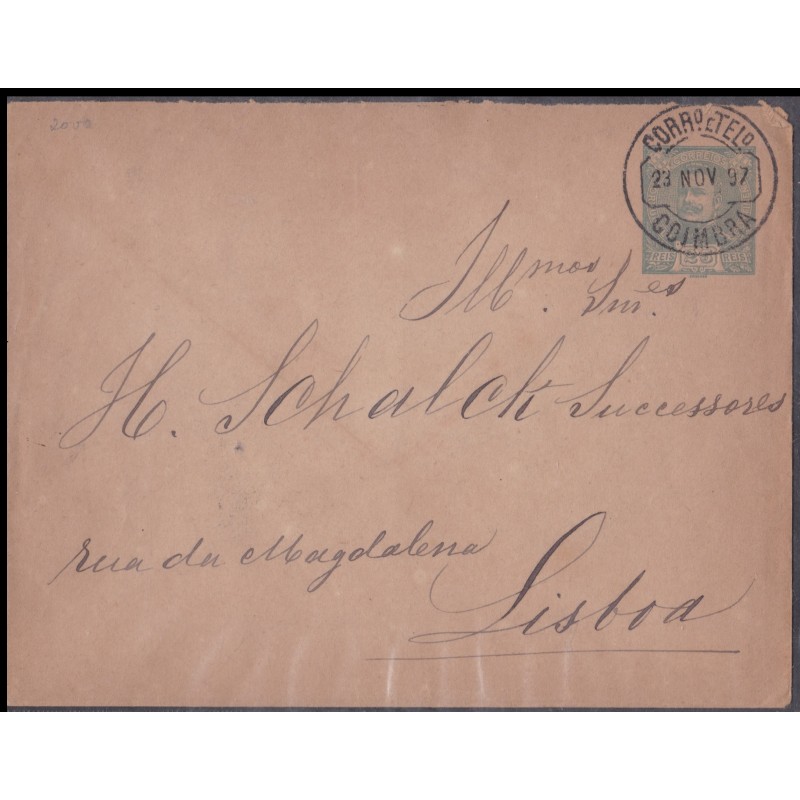 2000
CORRO. E TELO.
23 NOV 97
COIMBRA
CORREIOS
REIS 25 REIS
Illmos. Snres.
H. Schalck Successores
rua da Magdalena
Lisboa